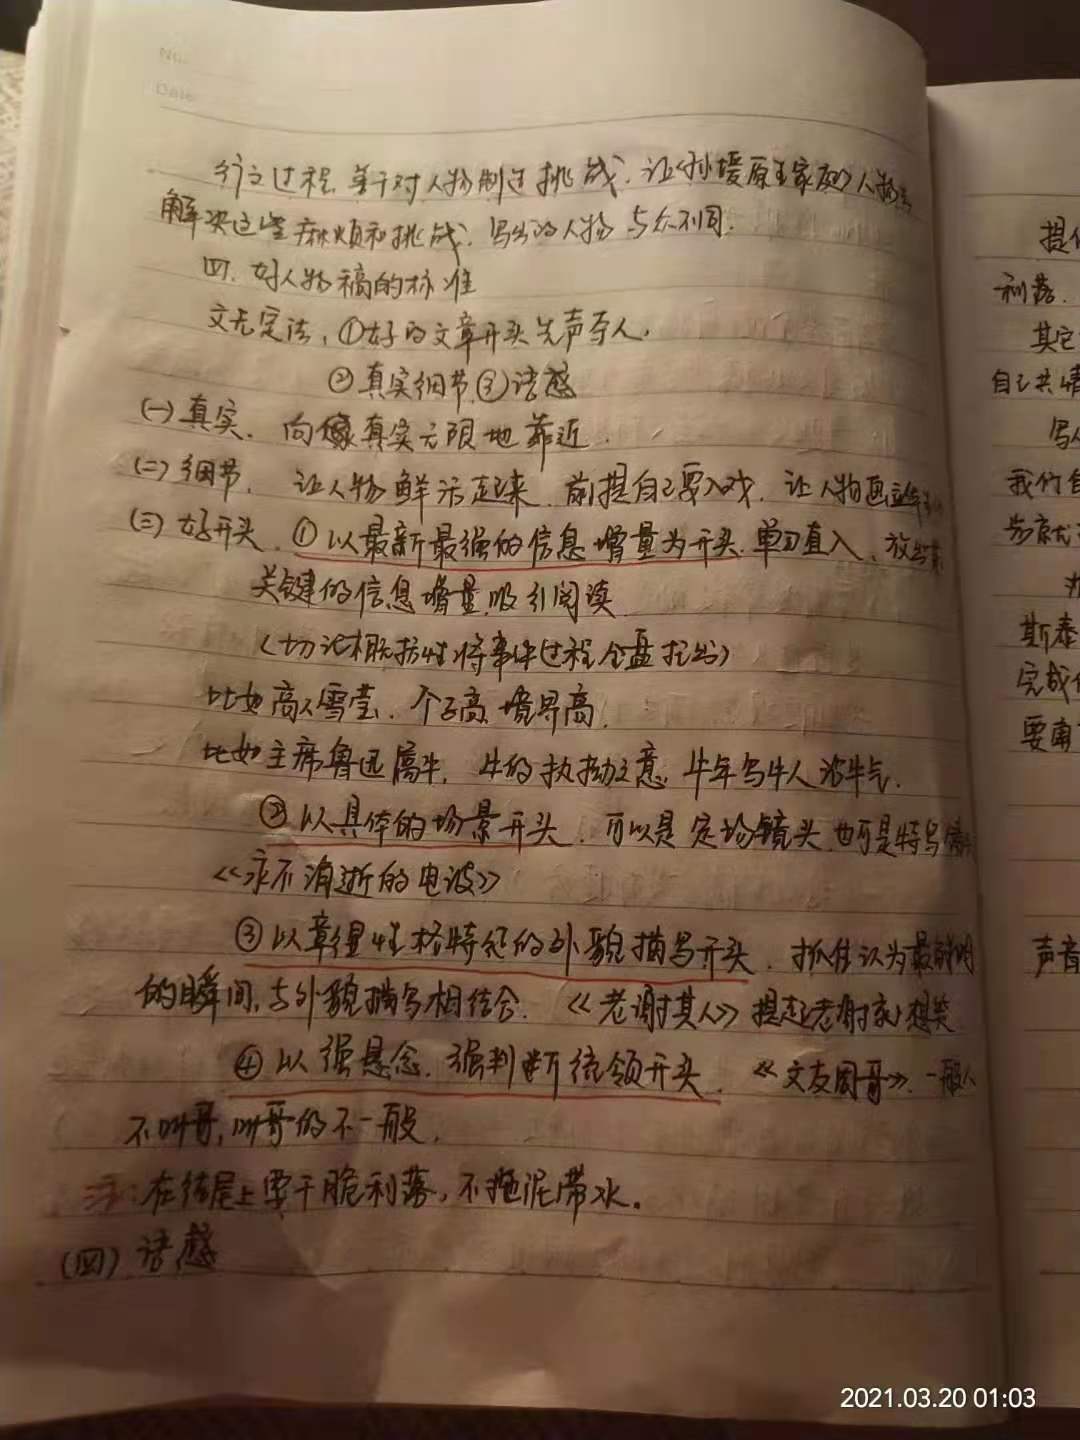 No.
Date
行文过程,善于对人物制造挑战,让《孙媛原生家庭》人物去
解决这些麻烦和挑战,写出的人物与众不同.
四.好人物稿的标准
文无定法,①好的文章开头先声夺人,
②真实细节,③语感
(一)真实. 向真实无限地靠近.
(二)细节. 让人物鲜活起来.前提自己要入戏.让人物画
(三)好开头.①以最新最强的信息增量为开头.单刀直入、放出最
关键的信息增量,吸引阅读
(切记概括性将事件过程全盘托出)
比如高人雪莹、个子高、境界高.
比如主席鲁迅属牛,牛的执拗之意,牛年写牛人沾牛气.
②以具体的场景开头.可以是定场镜头,也可是特写
《永不消逝的电波》
③以彰显性格特征的外貌描写开头.抓住认为最
的瞬间,与外貌描写相结合.《老谢其人》提起老谢就想笑
④以强悬念、强判断统领开头.《文友周哥》.一般人
不叫哥,叫哥的不一般.
注:在结尾上要干脆利落,不拖泥带水。
(四)语感
提
利落.
其它
自己共情
写
我们
斯泰
完成
要
声音
2021.03.20 01:03